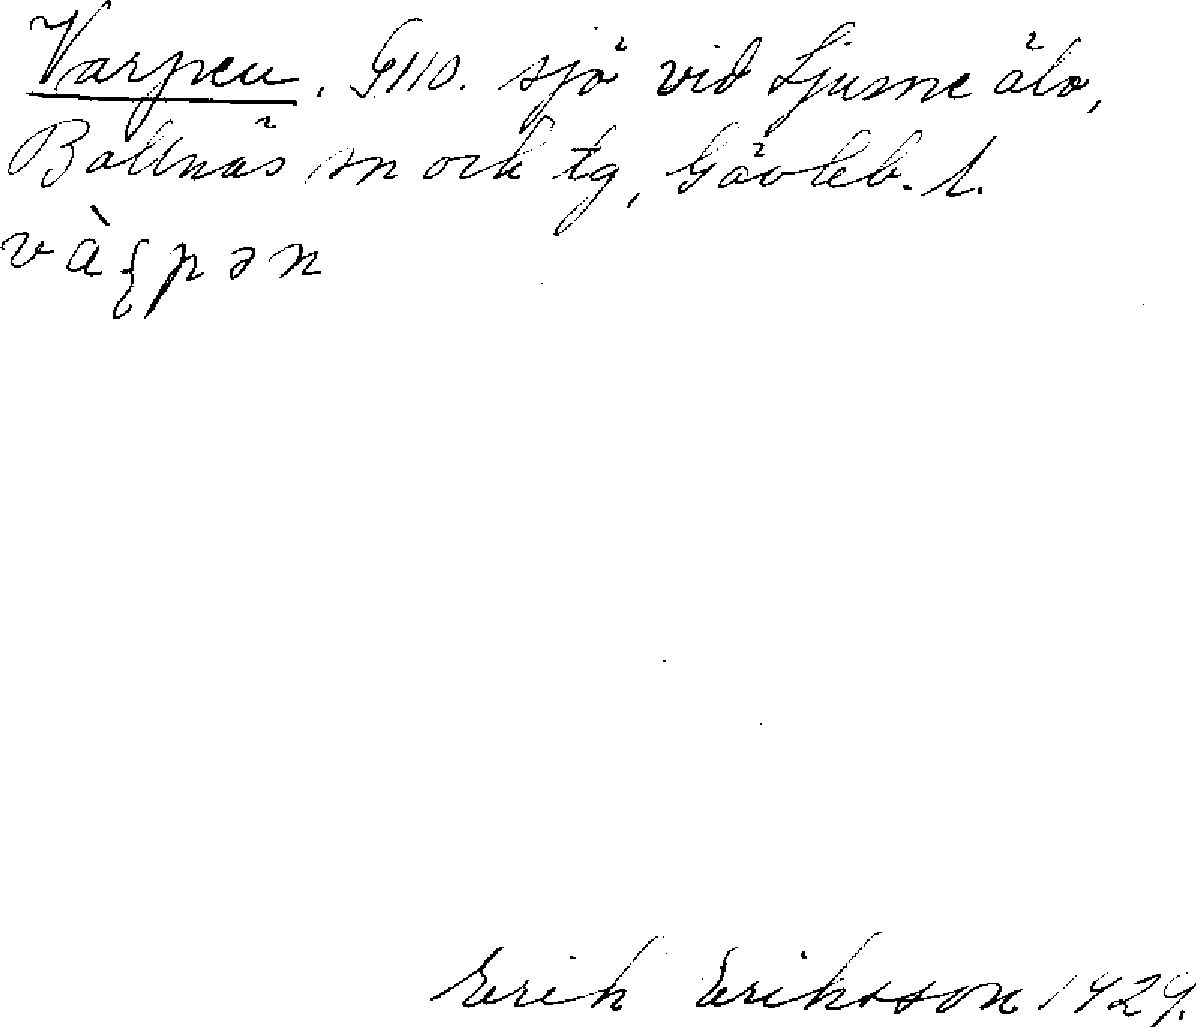 Varpen, G110. sjö vid Ljusne älv,
Bollnäs sn ock tg, Gävleb. l.
và{pən
Erik Eriksson 1929.